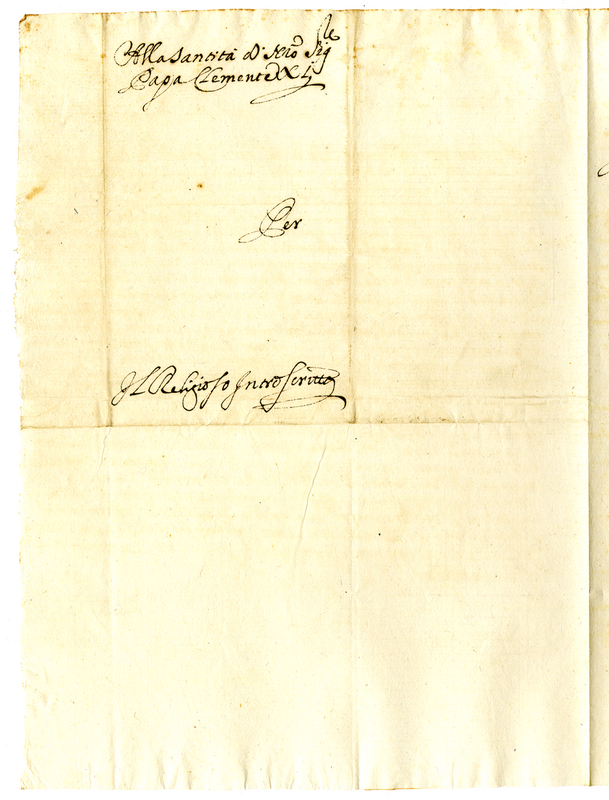 Alla Santità di Nro Sigle
Papa Clemente XI
Per
Il Religioso Introscritto